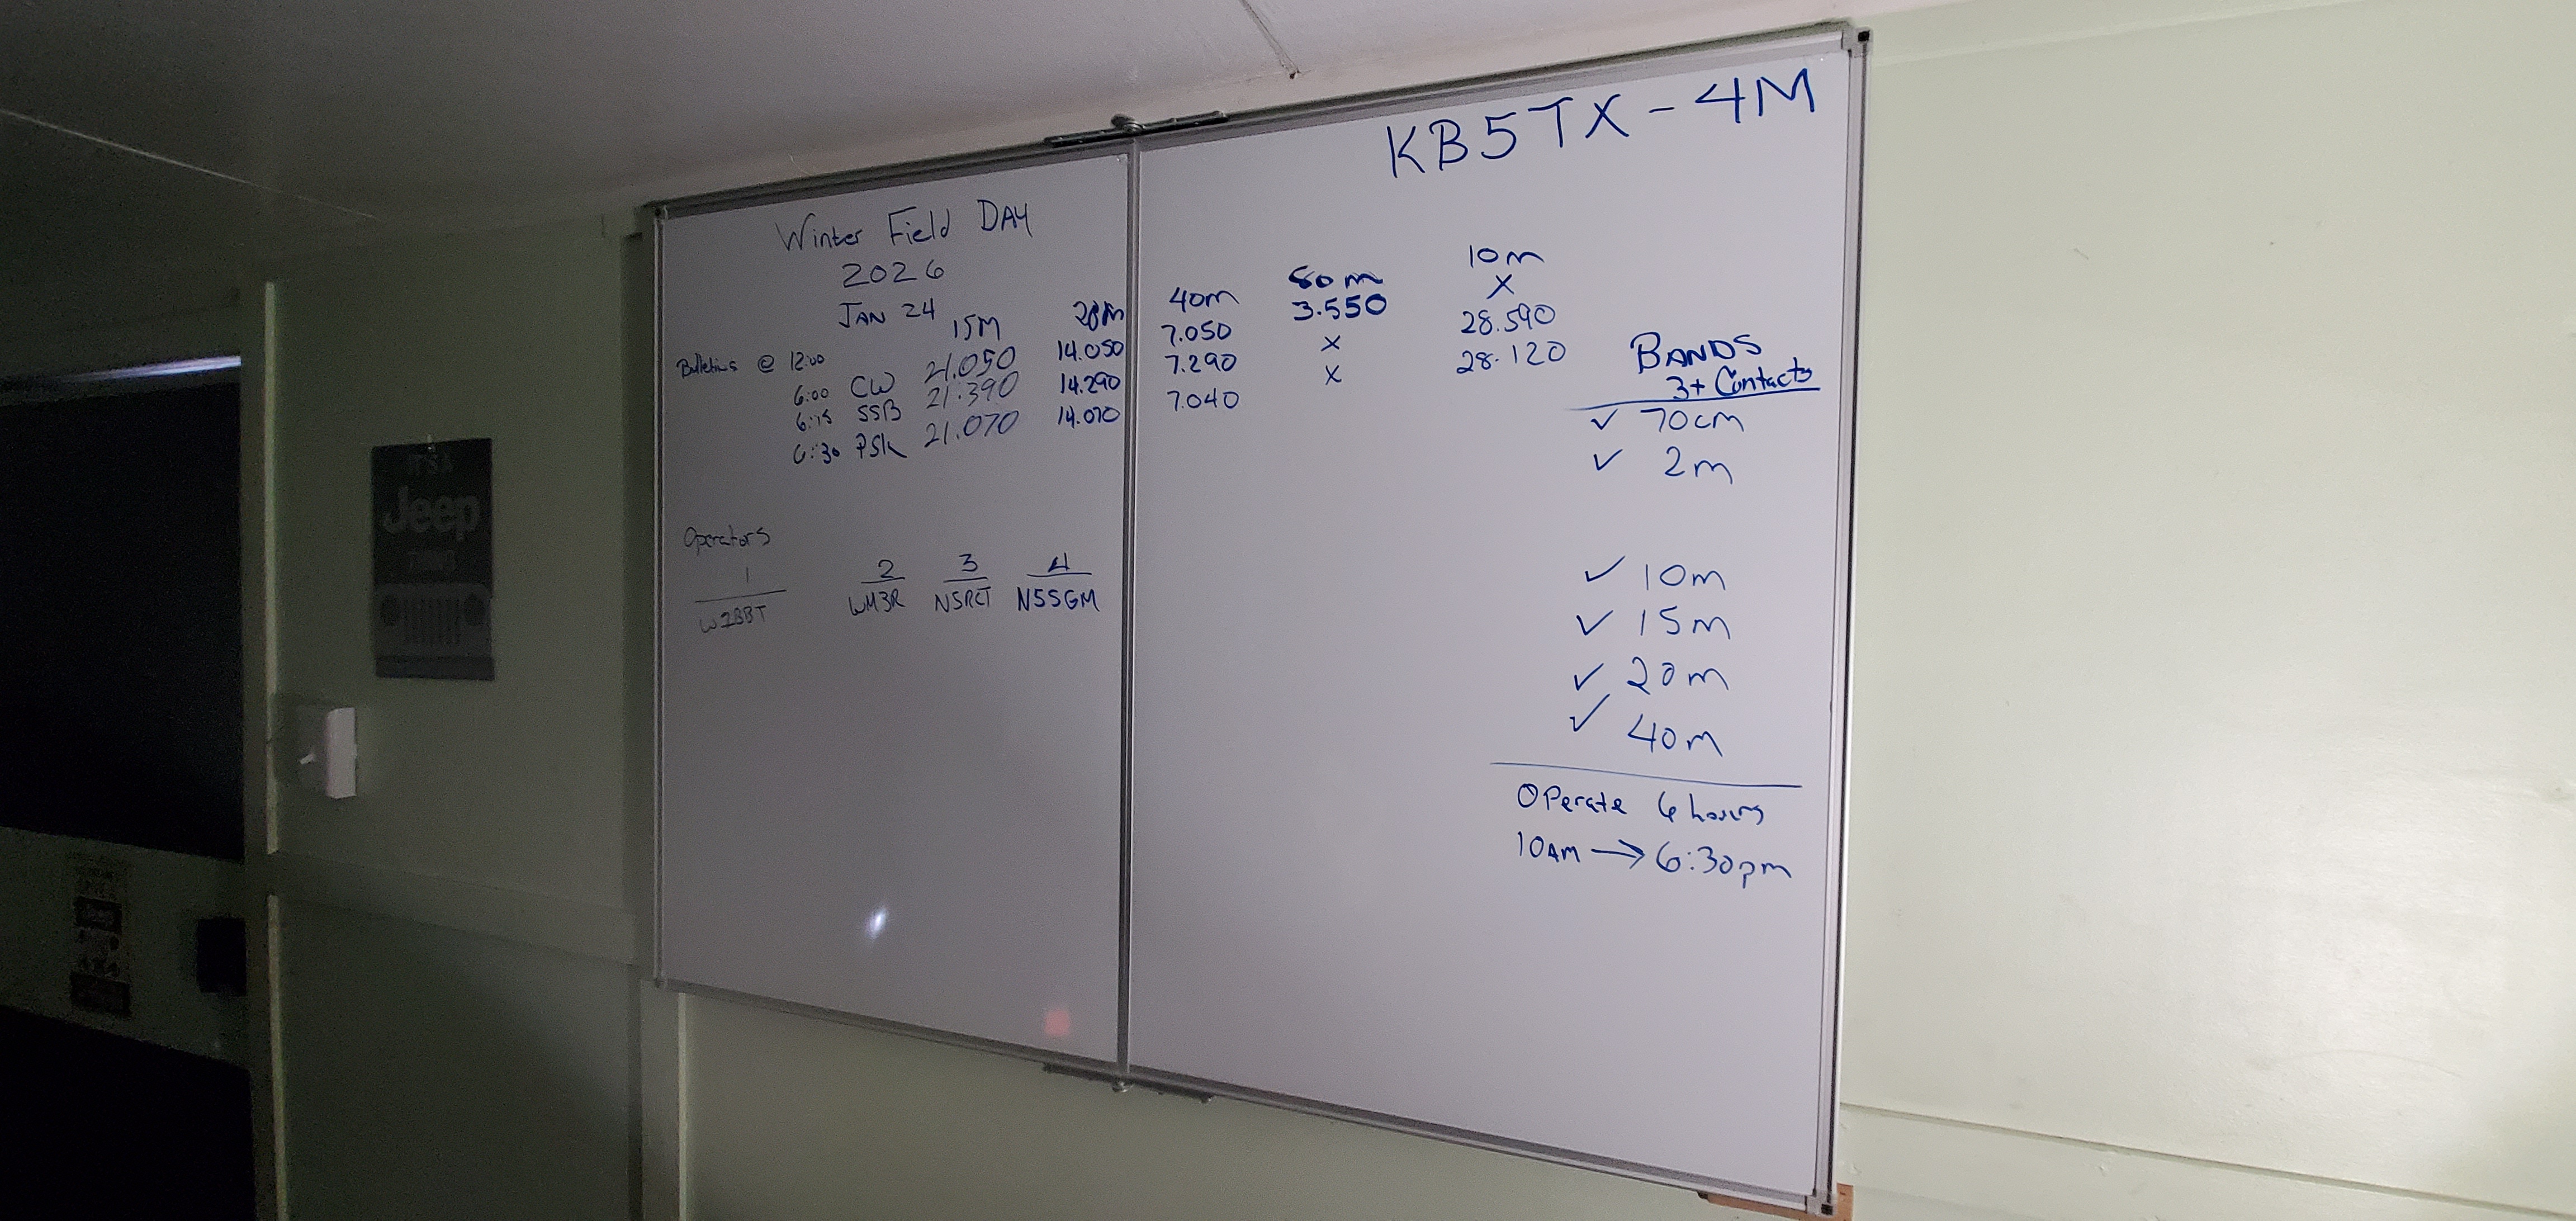 KB5TX - 4M
Winter Field DAY
2026
JAN 24
15M 20M 40m 80m 10m
Bulletins @ 12:00
6:00 CW 21.050 14.050 7.050 3.550 X
6:15 SSB 21.390 14.290 7.290 X 28.590
6:30 PSK 21.070 14.070 7.040 X 28.120
Operators
1 2 3 4
WM3R N5RCT N5SGM
BANDS
3+ Contacts
✓ 70cm
✓ 2m
✓ 10m
✓ 15m
✓ 20m
✓ 40m
Operate 6 hours
10AM → 6:30pm
IT'S A
Jeep
THING